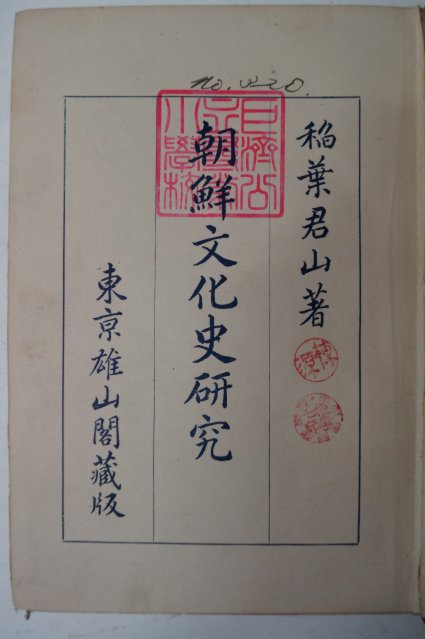 no. 220.
稲葉君山著
朝鮮文化史研究
東京雄山閣藏版